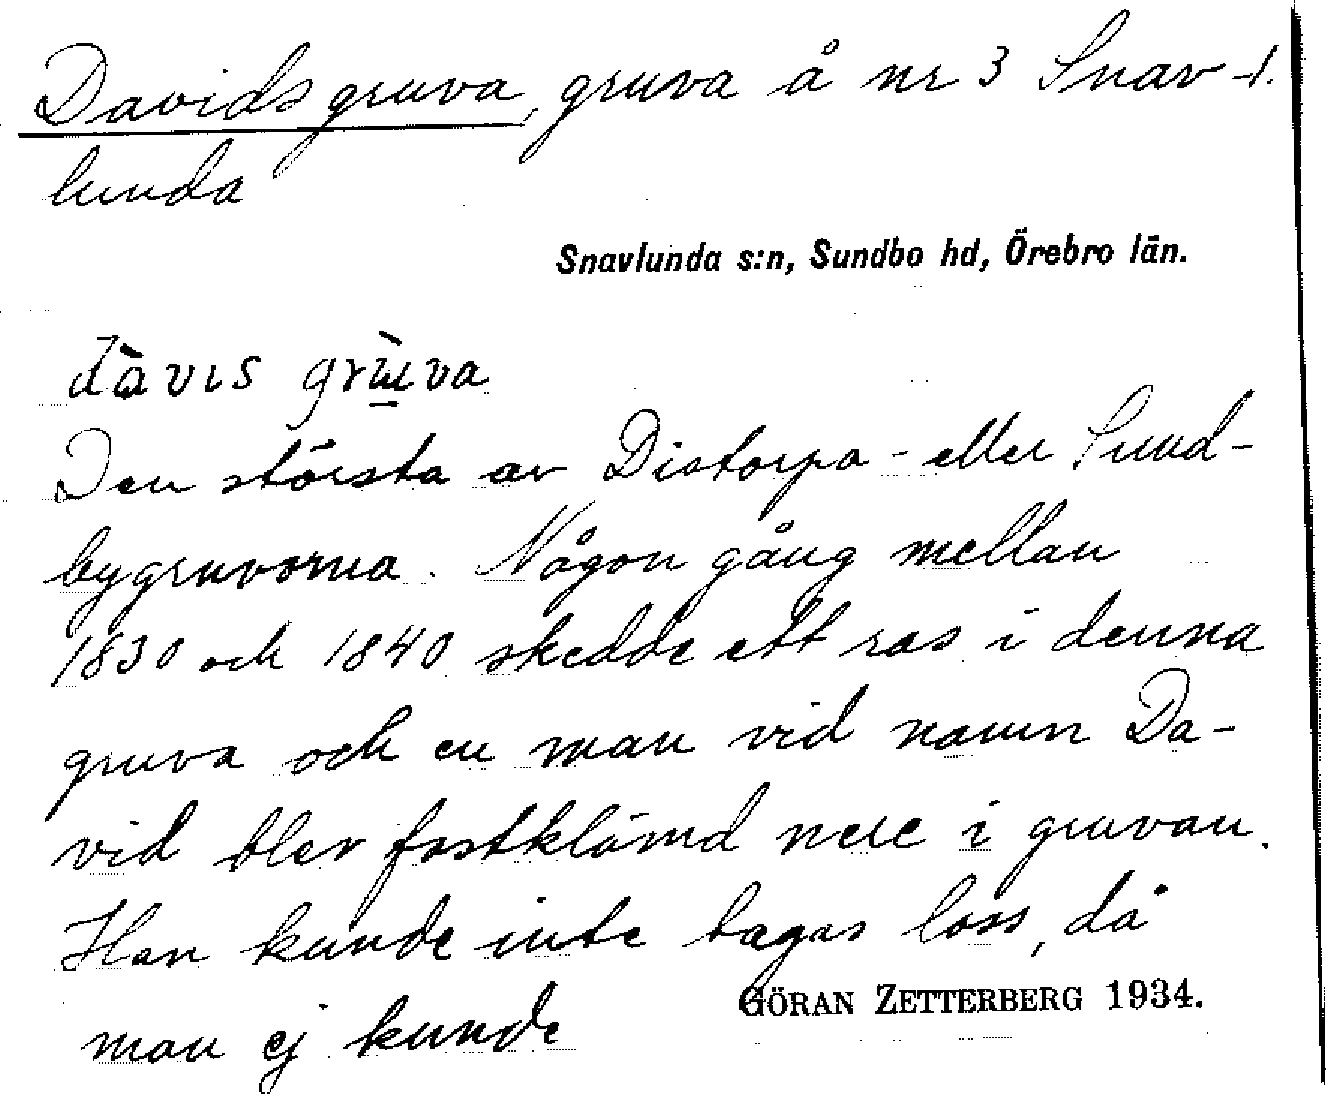 Davidsgruva, gruva å nr 3 Snav- 1.
lunda
Snavlunda s:n, Sundbo hd, Örebro län.
dàvɩs grɯ̀va
Den största av Distorpa- eller Sund-
bygruvorna. Någon gång mellan
1830 och 1840 skedde ett ras i denna
gruva och en man vid namn Da-
vid blev fastklämd nere i gruvan.
Han kunde inte tagas loss, då
man ej kunde
GÖRAN ZETTERBERG 1934.